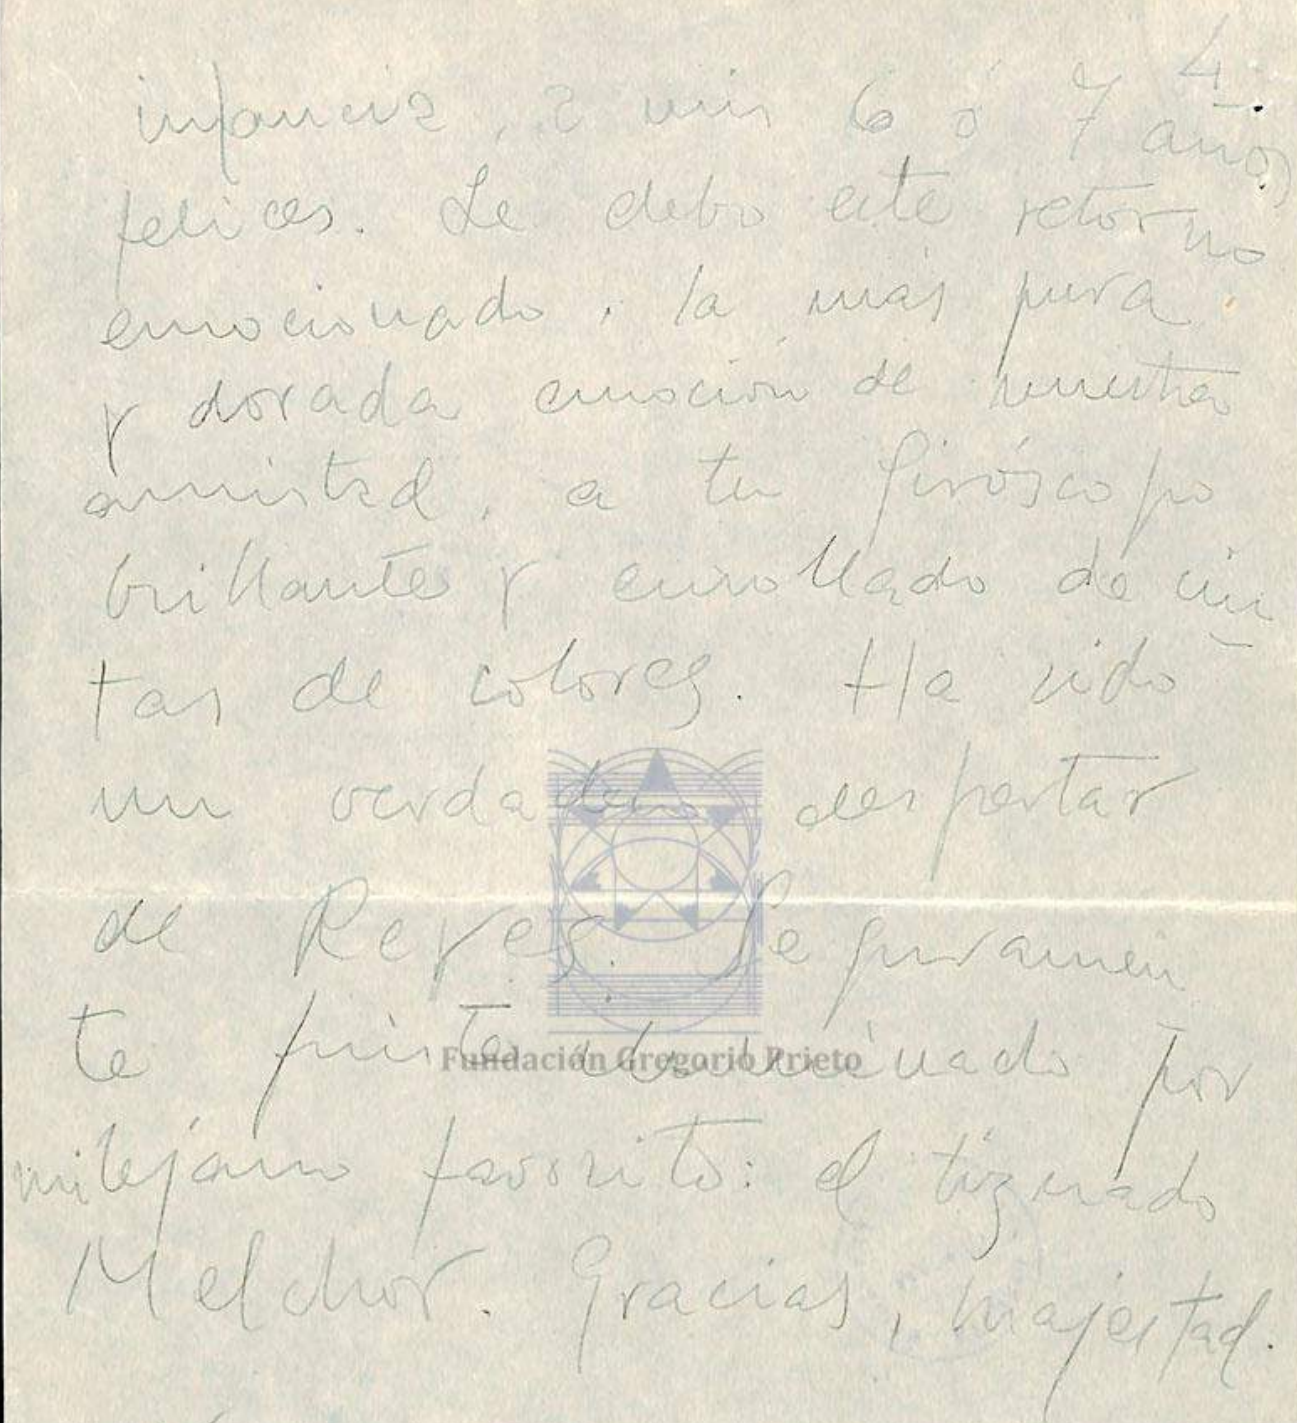 4.
infancia, a mis 6 ó 7 años
felices. Le debo este retorno
emocionado, la más pura
y dorada emoción de nuestra
amistad, a tu giróscopo
brillante y enrollado de cin
tas de colores. Ha sido
un verdadero despertar
de Reyes. Seguramen
te fuiste iluminado por
mi lejano favorito: el tiznado
Melchor. Gracias, majestad.
Fundación Gregorio Prieto